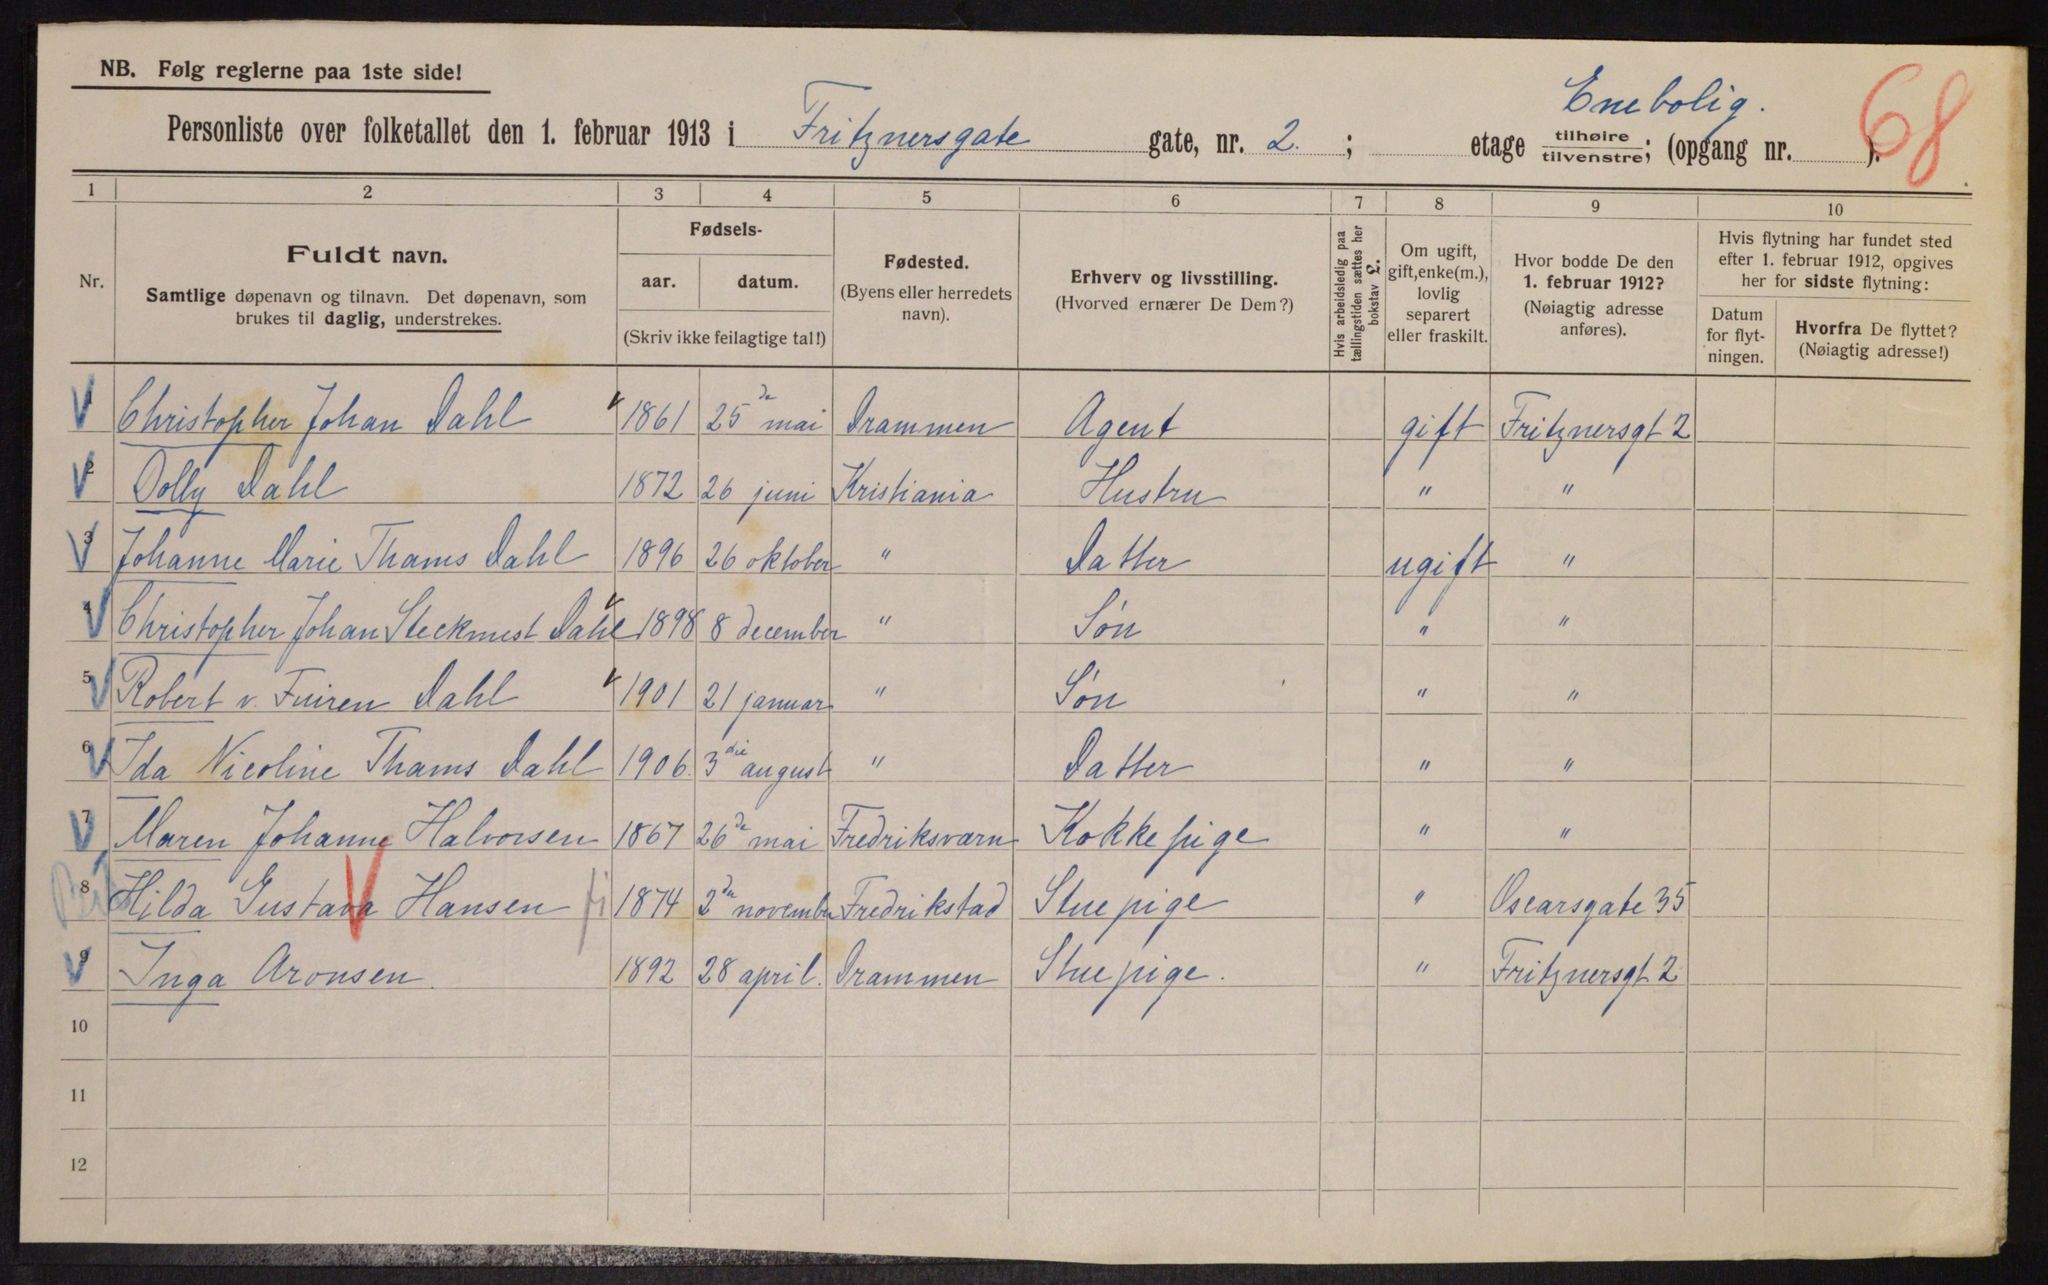 NB. Følg reglerne paa 1ste side!
Enebolig.
68
Personliste over folketallet den 1. februar 1913 i Fritznersgate gate, nr. 2. ; etage tilhøire / tilvenstre; (opgang nr. ).
1 2 3 4 5 6 7 8 9 10
Nr.
Fuldt navn.
Samtlige døpenavn og tilnavn. Det døpenavn, som
brukes til daglig, understrekes.
Fødsels-
aar. datum.
(Skriv ikke feilagtige tal!)
Fødested.
(Byens eller herredets
navn).
Erhverv og livsstilling.
(Hvorved ernærer De Dem?)
Hvis arbeidsledig paa
tællingstiden sættes her
bokstav L.
Om ugift,
gift, enke(m.),
lovlig
separert
eller fraskilt.
Hvor bodde De den
1. februar 1912?
(Nøiagtig adresse
anføres).
Hvis flytning har fundet sted
efter 1. februar 1912, opgives
her for sidste flytning:
Datum
for flyt-
ningen.
Hvorfra De flyttet?
(Nøiagtig adresse!)
1 Christopher Johan Dahl 1861 25de mai Drammen Agent gift Fritznersgt 2
2 Dolly Dahl 1872 26 juni Kristiania Hustru " "
3 Johanne Marie Thams Dahl 1896 26 oktober " Datter ugift "
4 Christopher Johan Steckmest Dahl 1898 8 december " Søn " "
5 Robert v. Fuiren Dahl 1901 21 januar " Søn " "
6 Ida Nicoline Thams Dahl 1906. 3die august " Datter " "
7 Maren Johanne Halvorsen 1867 26de mai Fredriksværn Kokkepige " "
8 Hilda Gustava Hansen 1874 2den november Fredrikstad Stuepige " Oscarsgate 35
9 Inga Aronsen. 1892 28 april. Drammen Stuepige. " Fritznersgt 2
10
11
12